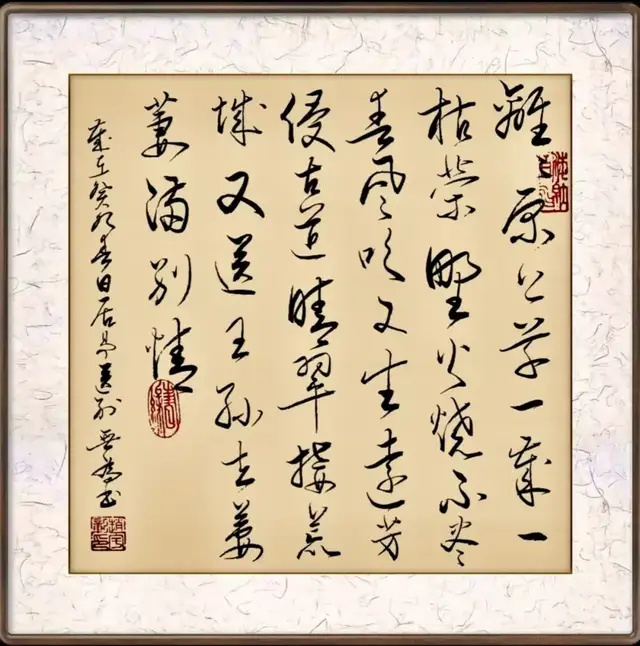 離原上草一歲一
枯榮野火燒不盡
春風吹又生遠芳
侵古道晴翠接荒
城又送王孫去萋
萋滿別情
歲在癸卯春日居易送別 無為書